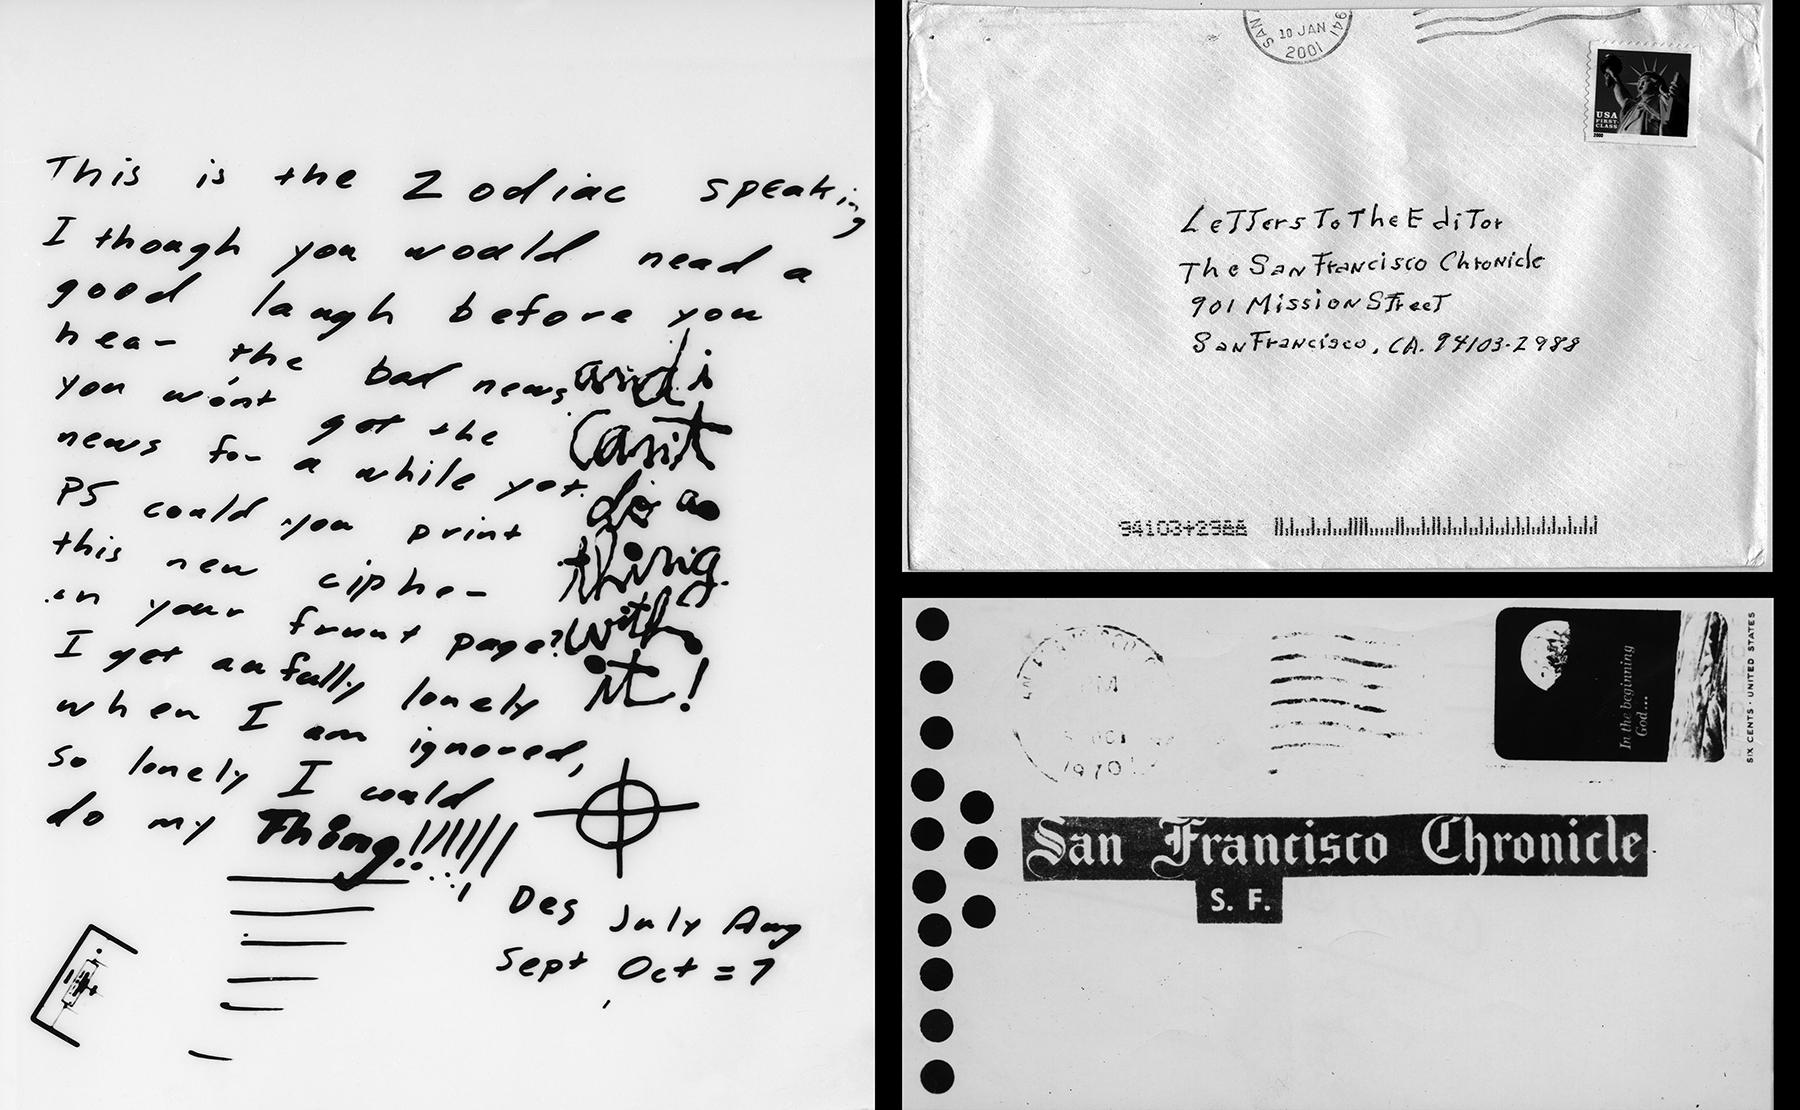 This is the Zodiac speaking
I though you would nead a
good laugh before you
hear the bad news
you won't get the
news for a while yet.
PS could you print
this new cipher
in your frunt page?
I get aufully lonely
when I am ignored,
so lonely I could
do my Thing!!!!!!
and i
Can't
do a
thing
with
it!
Des July Aug
Sept Oct = 7
10 JAN
2001
SAN
941
USA
FIRST-CLASS
2000
LeTTers To The EdiTor
The San Francisco Chronicle
901 Mission STreeT
San Francisco, CA. 94103-2988
94103+2988
1970
In the beginning
God...
SIX CENTS · UNITED STATES
San Francisco Chronicle
S. F.